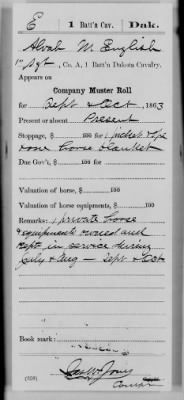 E | 1 Batt'n Cav. | Dak.
Alvah M. English
1" Sgt, Co. A, 1 Batt'n Dakota Cavalry.
Appears on
Company Muster Roll
for Sept & Oct, 1863
Present or absent Present
Stoppage, $ 100 for 1 picket rope
& one horse blanket
Due Gov't, $ 100 for
Valuation of horse, $ 100
Valuation of horse equipments, $ 100
Remarks: 1 private horse
& equipments owned and
kept in service during
July & Aug — Sept & Oct
Book mark:
(858)
Copyist.